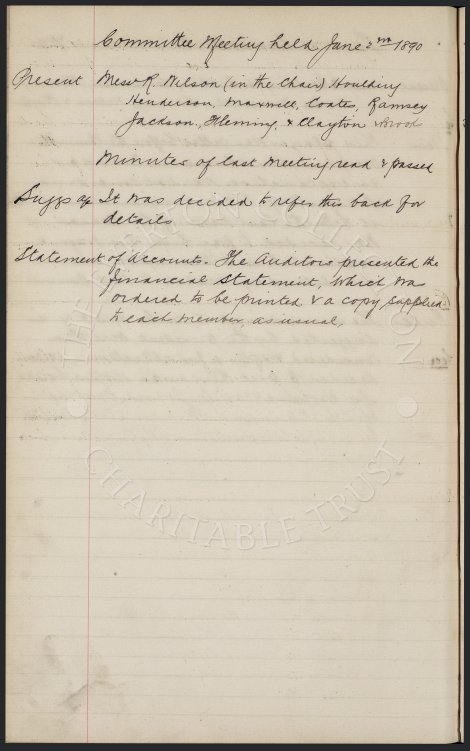 Committee Meeting held June 2nd 1890
Present Messrs R. Wilson (in the Chair) Houlding
Henderson, Maxwell, Coates, Ramsey
Jackson, Fleming, & Clayton & Brod
Minutes of last Meeting read & passed
Suggs It was decided to refer this back for
details
Statement of Accounts. The Auditors presented the
financial statement, which was
ordered to be printed & a copy supplied
to each member, as usual,
THE EVERTON COLLECTION
CHARITABLE TRUST